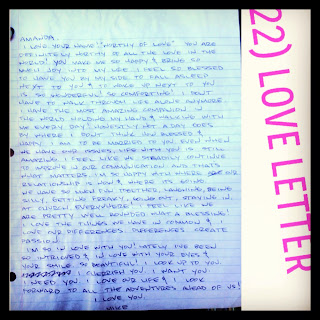 AMANDA,
I LOVE YOUR NAME! "WORTHY OF LOVE" YOU ARE
DEFINITELY WORTHY OF ALL THE LOVE IN THE
WORLD! YOU MAKE ME SO HAPPY & BRING SO
MUCH JOY INTO MY LIFE. I FEEL SO BLESSED
TO HAVE YOU BY MY SIDE. TO FALL ASLEEP
NEXT TO YOU & TO WAKE UP NEXT TO YOU
IS SO WONDERFUL! SO COMFORTING! I DON'T
HAVE TO WALK THROUGH LIFE ALONE ANYMORE.
I HAVE THE MOST AMAZING COMPANION IN
THE WORLD HOLDING MY HAND & WALKING WITH
ME EVERY DAY! HONESTLY NOT A DAY GOES
BY WHERE I DON'T THINK HOW BLESSED &
HAPPY I AM TO BE MARRIED TO YOU. EVEN WHEN
WE HAVE OUR ISSUES, LIFE WITH YOU IS STILL
AMAZING. I FEEL LIKE WE STEADILY CONTINUE
TO IMPROVE IN OUR COMMUNICATION AND THAT'S
WHAT MATTERS. I'M SO HAPPY WITH WHERE OUR
RELATIONSHIP IS NOW & WHERE ITS GOING.
WE HAVE SO MUCH FUN TOGETHER, LAUGHING, BEING
SILLY, GETTING FREAKY, GOING OUT, STAYING IN,
AT CHURCH, EVERYWHERE! I FEEL LIKE WE
ARE PRETTY WELL ROUNDED. WHAT A BLESSING!
I LOVE THE THINGS WE HAVE IN COMMON &
LOVE OUR DIFFERENCES. DIFFERENCES CREATE
PASSION.
I'M SO IN LOVE WITH YOU! LATELY I'VE BEEN
SO INTRIGUED & IN LOVE WITH YOUR EYES &
YOUR SMILE. SO BEAUTIFUL! I LOOK UP TO YOU.
I CHERISH YOU. I WANT YOU.
I NEED YOU. I LOVE OUR LIFE & I LOOK
FORWARD TO ALL THE ADVENTURES AHEAD OF US!
I LOVE YOU.
MIKE
22) LOVE LETTER